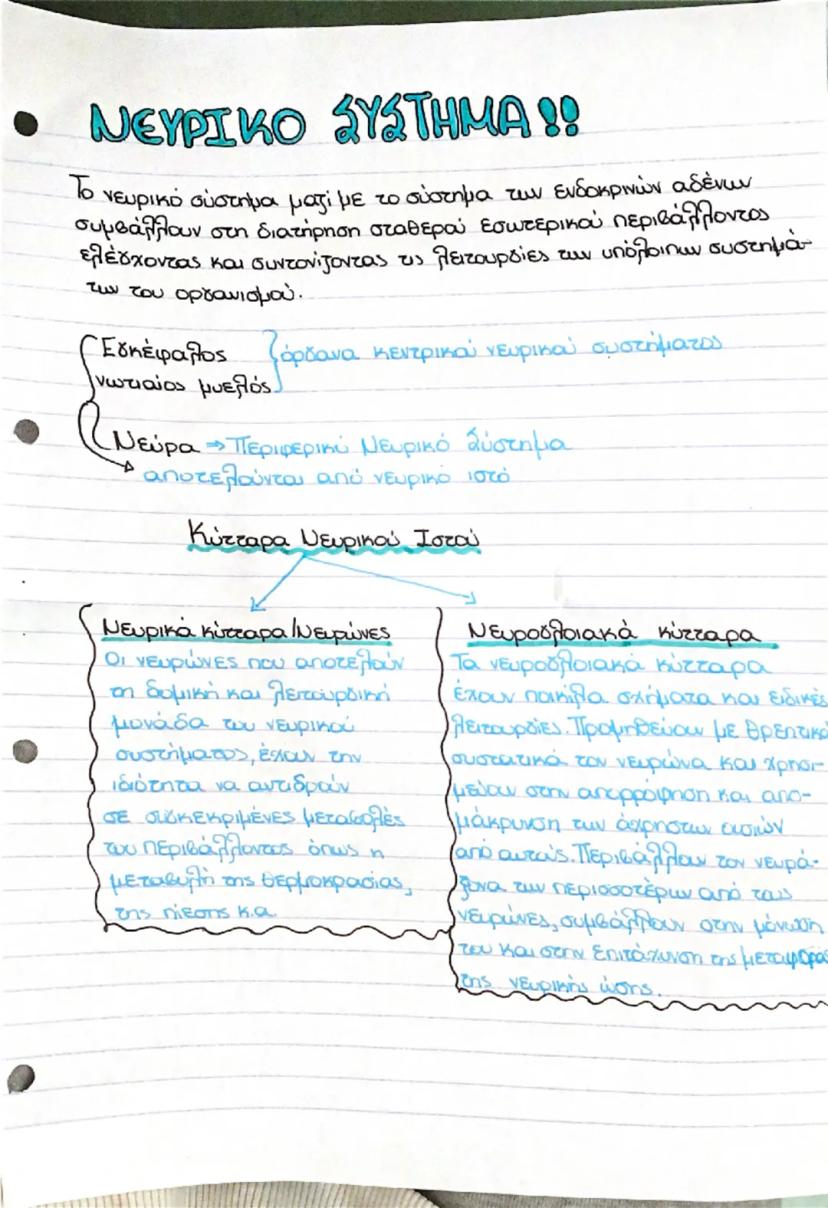 ΝΕΥΡΙΚΟ ΣΥΣΤΗΜΑ!!
Το νευρικό σύστημα μαζί με το σύστημα των ενδοκρινών αδένων
συμβάλλουν στη διατήρηση σταθερού εσωτερικού περιβάλλοντος
ελέγχοντας και συντονίζοντας τις λειτουργίες των υπόλοιπων συστημά-
των του οργανισμού.
Εγκέφαλος } όργανα κεντρικού νευρικού συστήματος
νωτιαίος μυελός
Νεύρα ⇒ Περιφερικό Νευρικό Σύστημα
αποτελούνται από νευρικό ιστό
Κύτταρα Νευρικού Ιστού
Νευρικά κύτταρα/Νευρώνες
Οι νευρώνες που αποτελούν
τη δομική και λειτουργική
μονάδα του νευρικού
συστήματος, έχουν την
ιδιότητα να αντιδρούν
σε συγκεκριμένες μεταβολές
του περιβάλλοντος όπως η
μεταβολή της θερμοκρασίας,
της πίεσης κ.α.
Νευρογλοιακά κύτταρα
Τα νευρογλοιακά κύτταρα
έχουν ποικίλα σχήματα και ειδικές
λειτουργίες. Προμηθεύουν με θρεπτικά
συστατικά τον νευρώνα και χρησι-
μεύουν στην απορρόφηση και απο-
μάκρυνση των άχρηστων ουσιών
από αυτούς. Περιβάλλουν τον νευρά-
ξονα των περισσοτέρων από τους
νευρώνες, συμβάλλουν στην μόνωση
του και στην επιτάχυνση της μεταφοράς
της νευρικής ώσης.